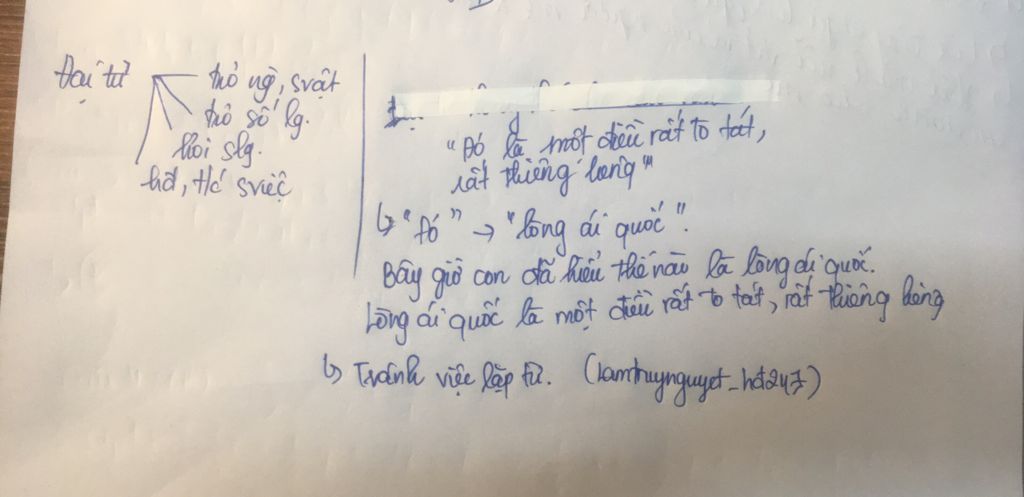 Đại từ
trỏ ng', svật
trỏ số lg.
hỏi slg.
hđ, t/c sviệc
"Đó là một điều rất to tát,
rất thiêng liêng"
↳ "Đó" → "lòng ái quốc".
Bây giờ con đã hiểu thế nào là lòng ái quốc.
Lòng ái quốc là một điều rất to tát, rất thiêng liêng
↳ Tránh việc lặp từ. (lamthuynguyet_hđ247)